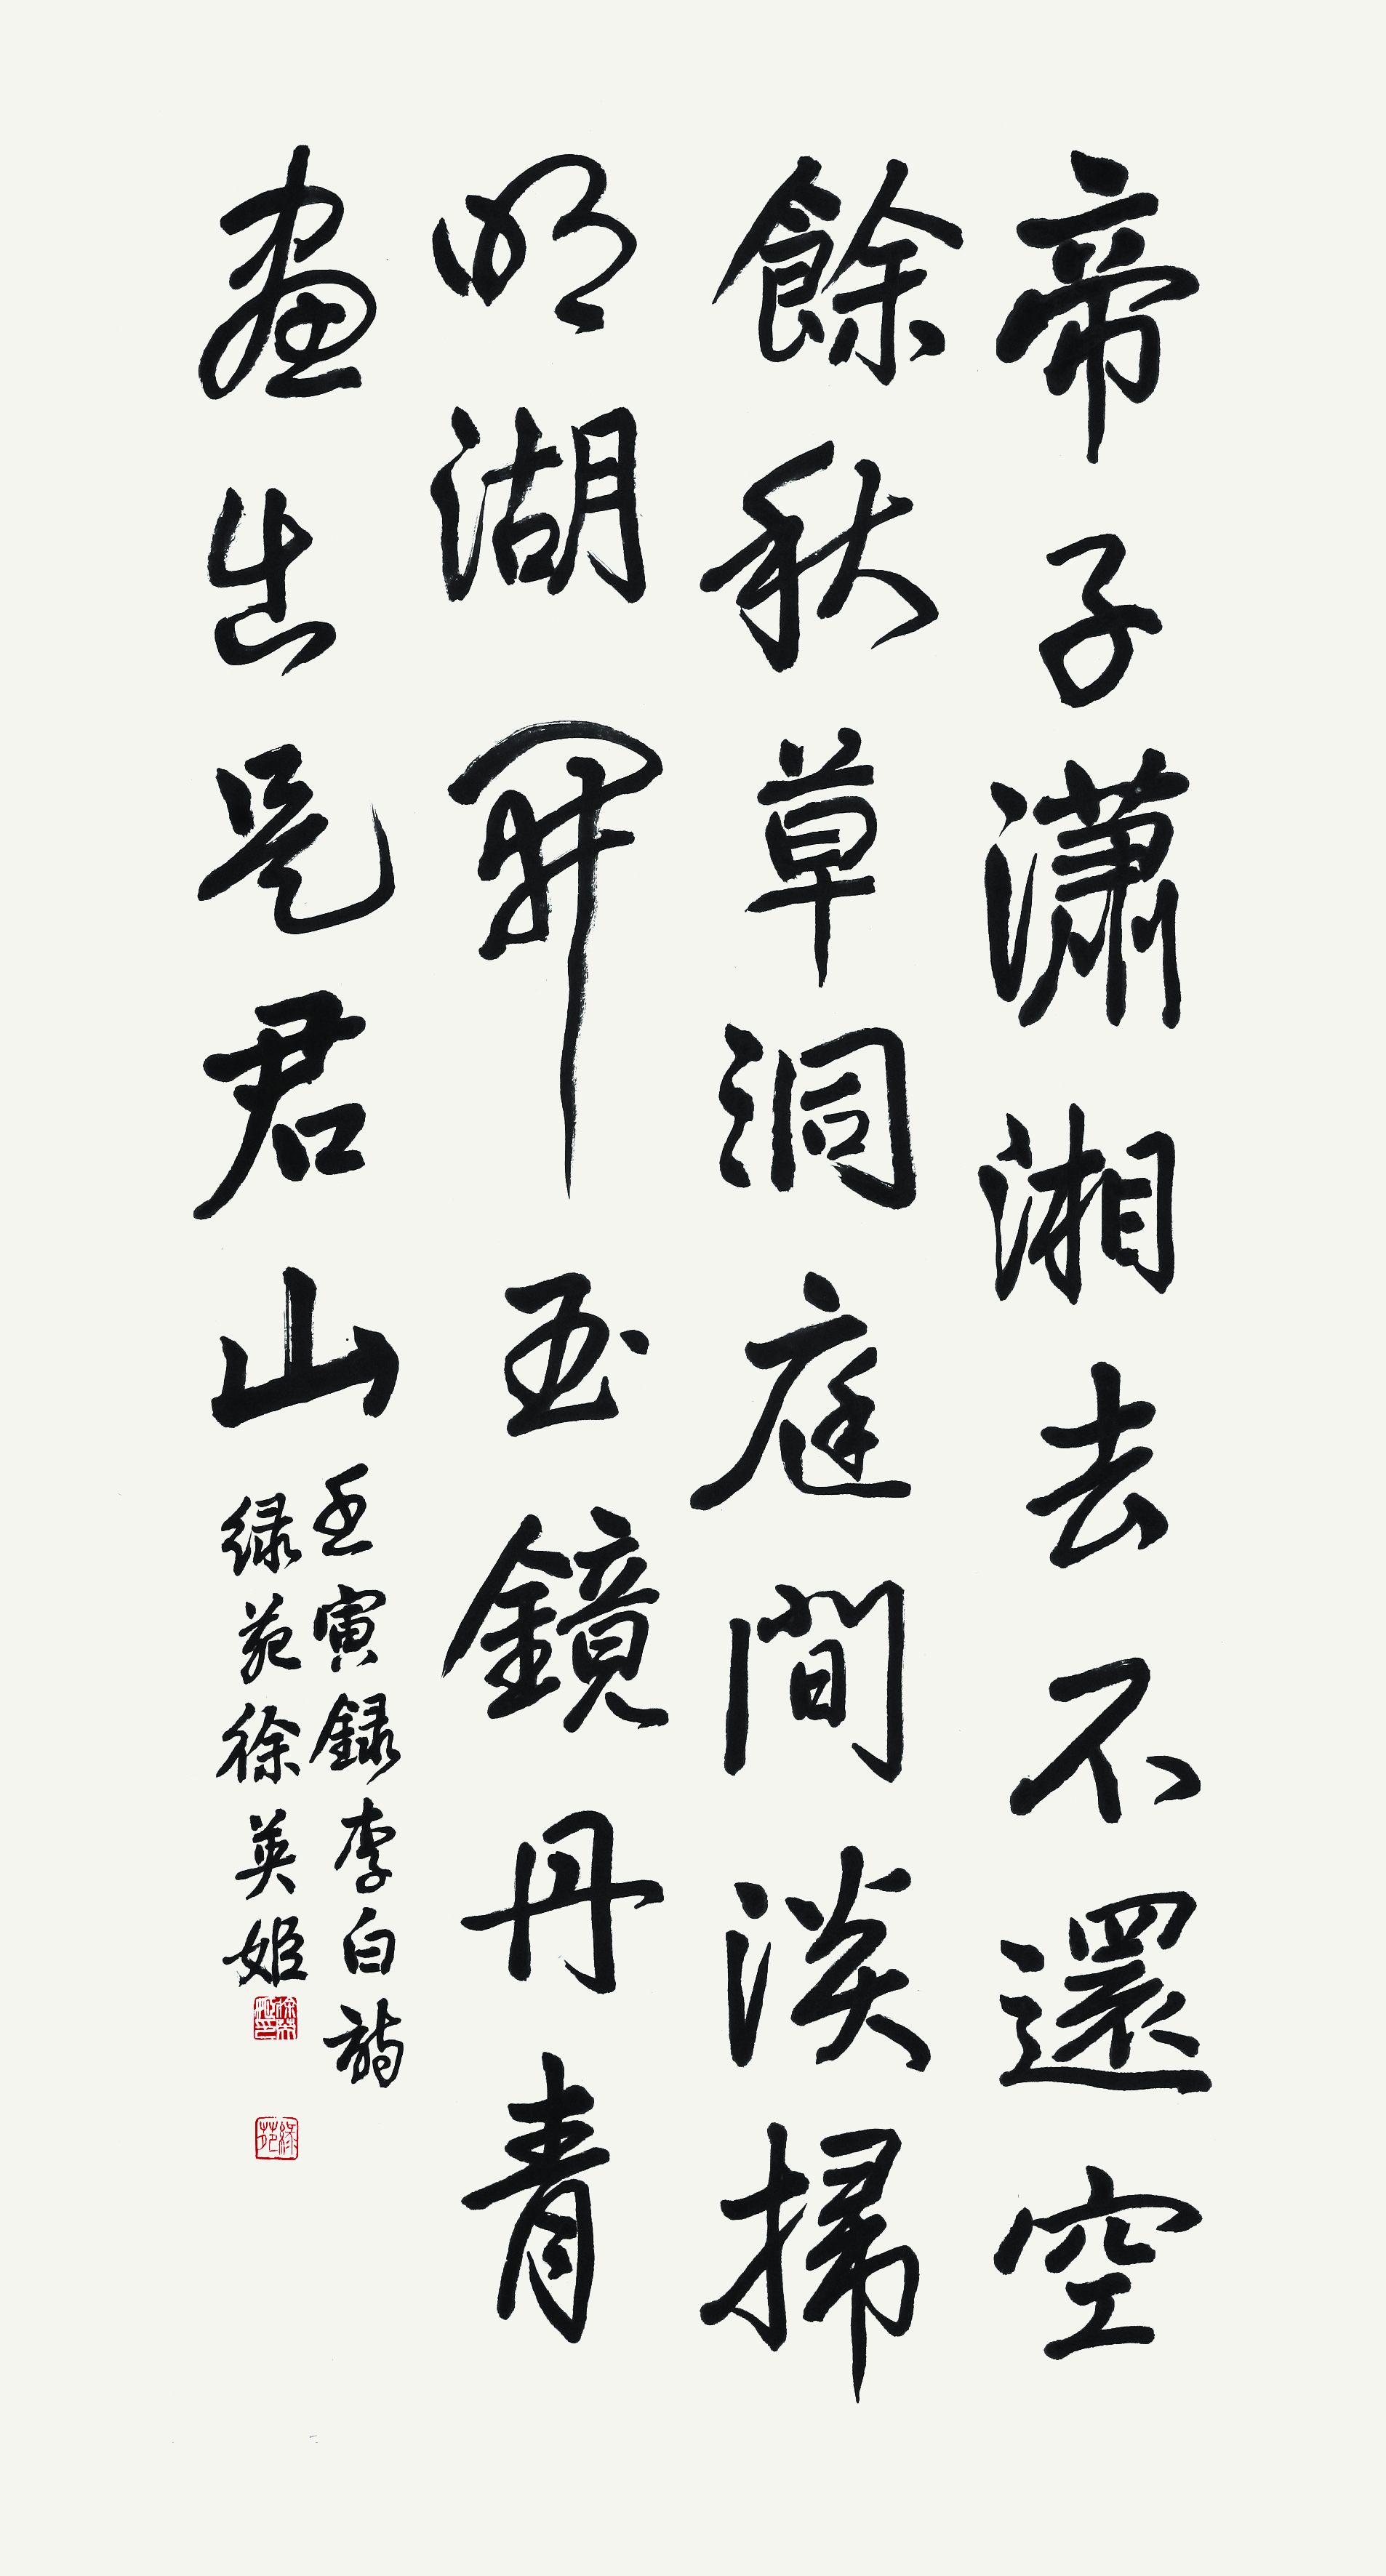 帝子瀟湘去不還空
餘秋草洞庭間淡掃
明湖開玉鏡丹青
畫出是君山
壬寅録李白詩
緑苑徐英姬
緑苑